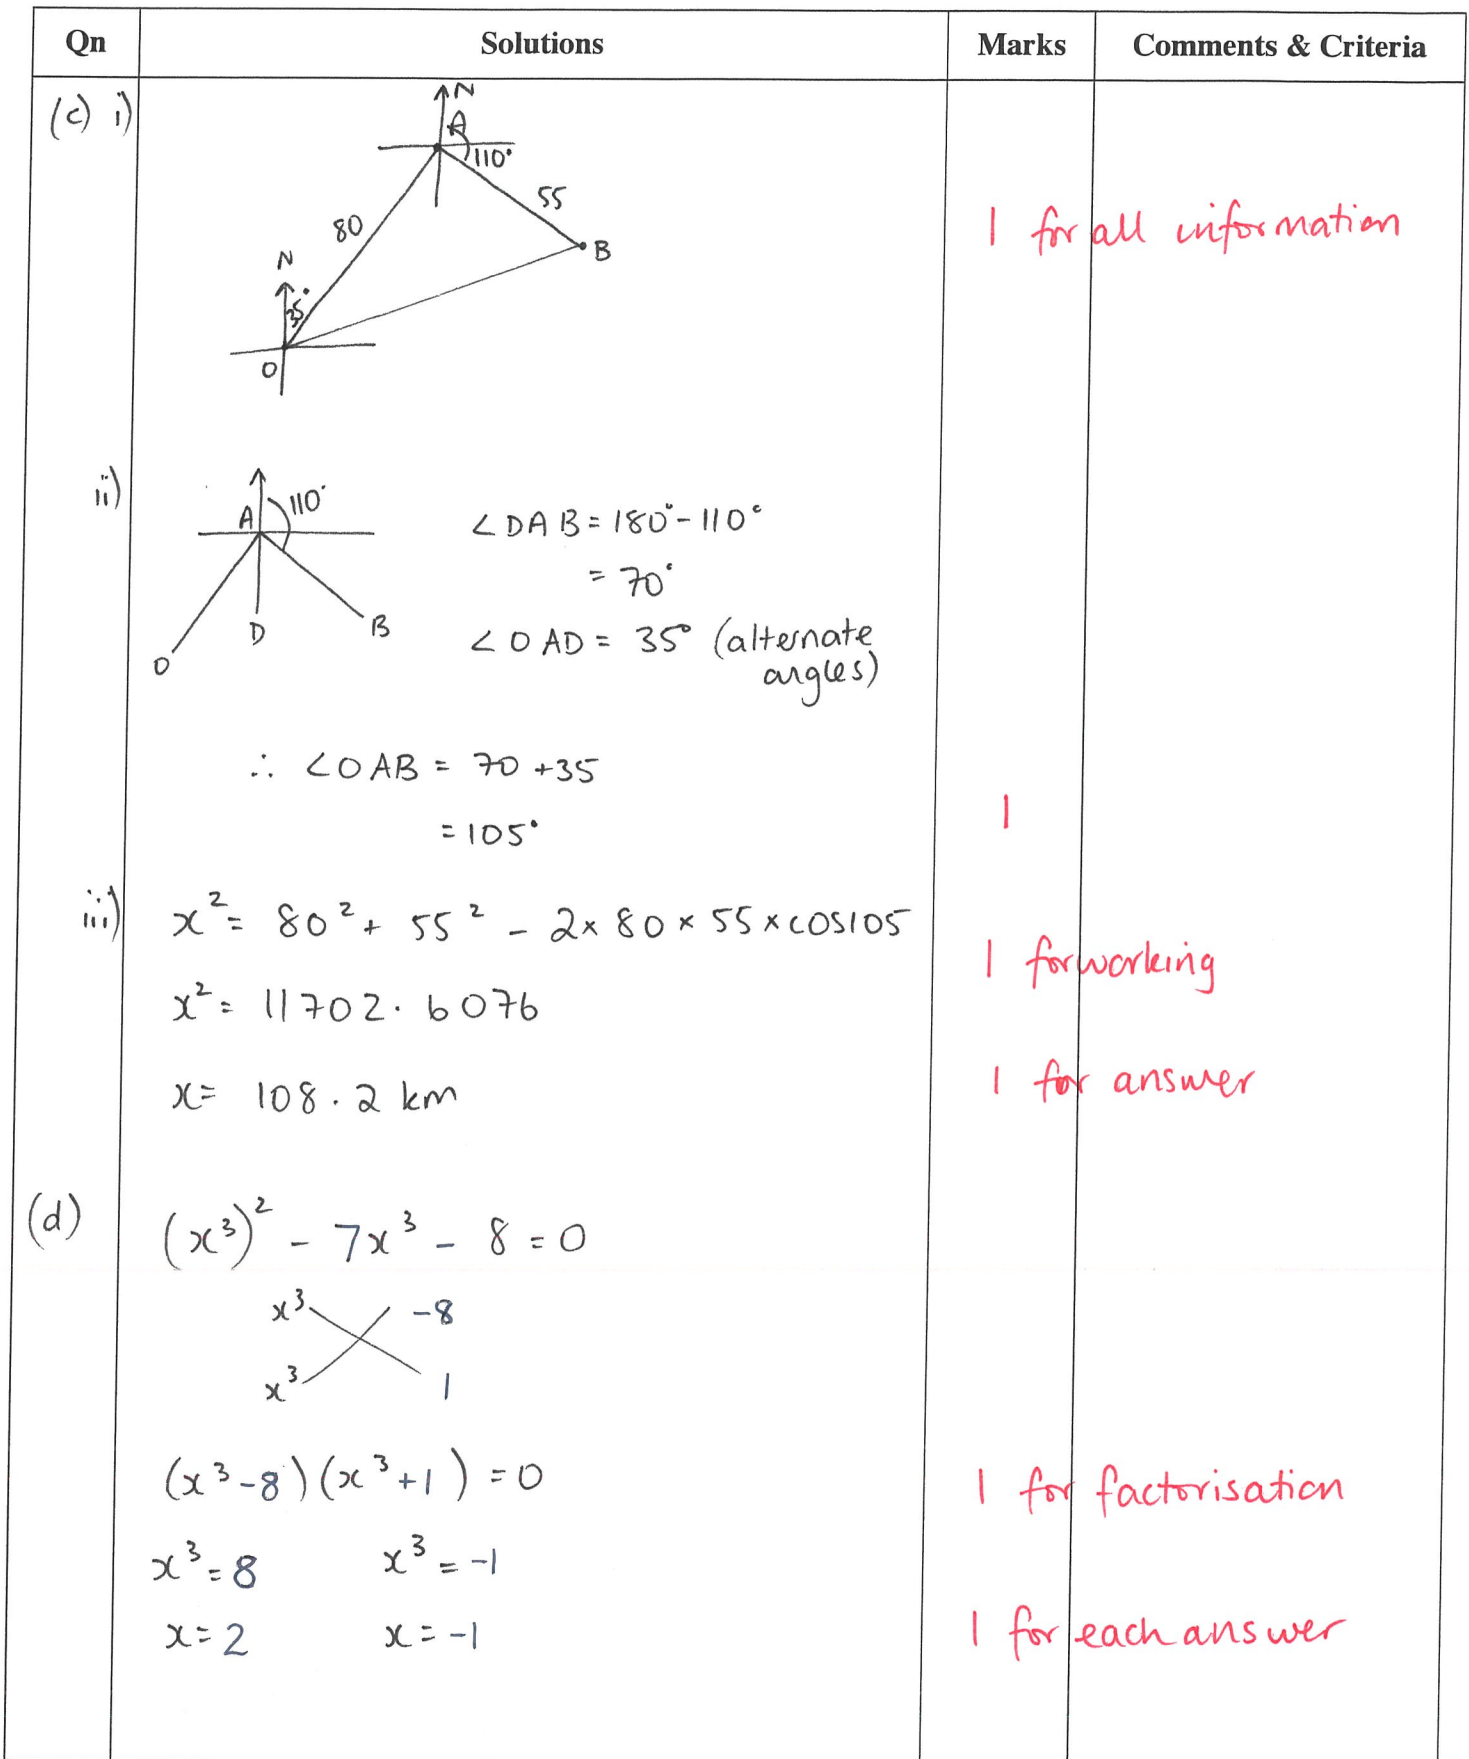 Qn Solutions Marks Comments & Criteria
(c) i)
N
A
110°
55
80
B
N
35°
O
1 for all information
ii)
110°
A
D
B
O
∠DAB = 180° - 110°
= 70°
∠OAD = 35° (alternate
angles)
∴ ∠OAB = 70 + 35
= 105°
1
iii) x² = 80² + 55² - 2 × 80 × 55 × cos105
1 for working
x² = 11702.6076
x = 108.2 km
1 for answer
(d) (x³)² - 7x³ - 8 = 0
x³ -8
x³ 1
(x³-8)(x³+1) = 0
1 for factorisation
x³ = 8 x³ = -1
x = 2 x = -1
1 for each answer